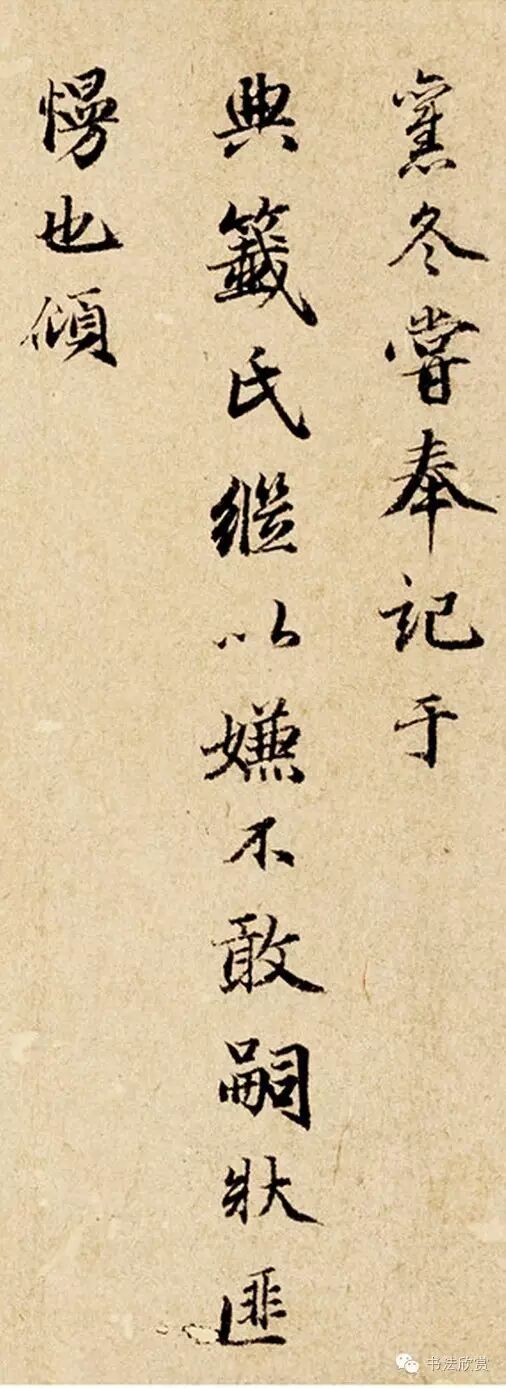 舊冬嘗奉記于
典籤氏繼以嫌不敢嗣狀匪
慢也傾
书法欣赏